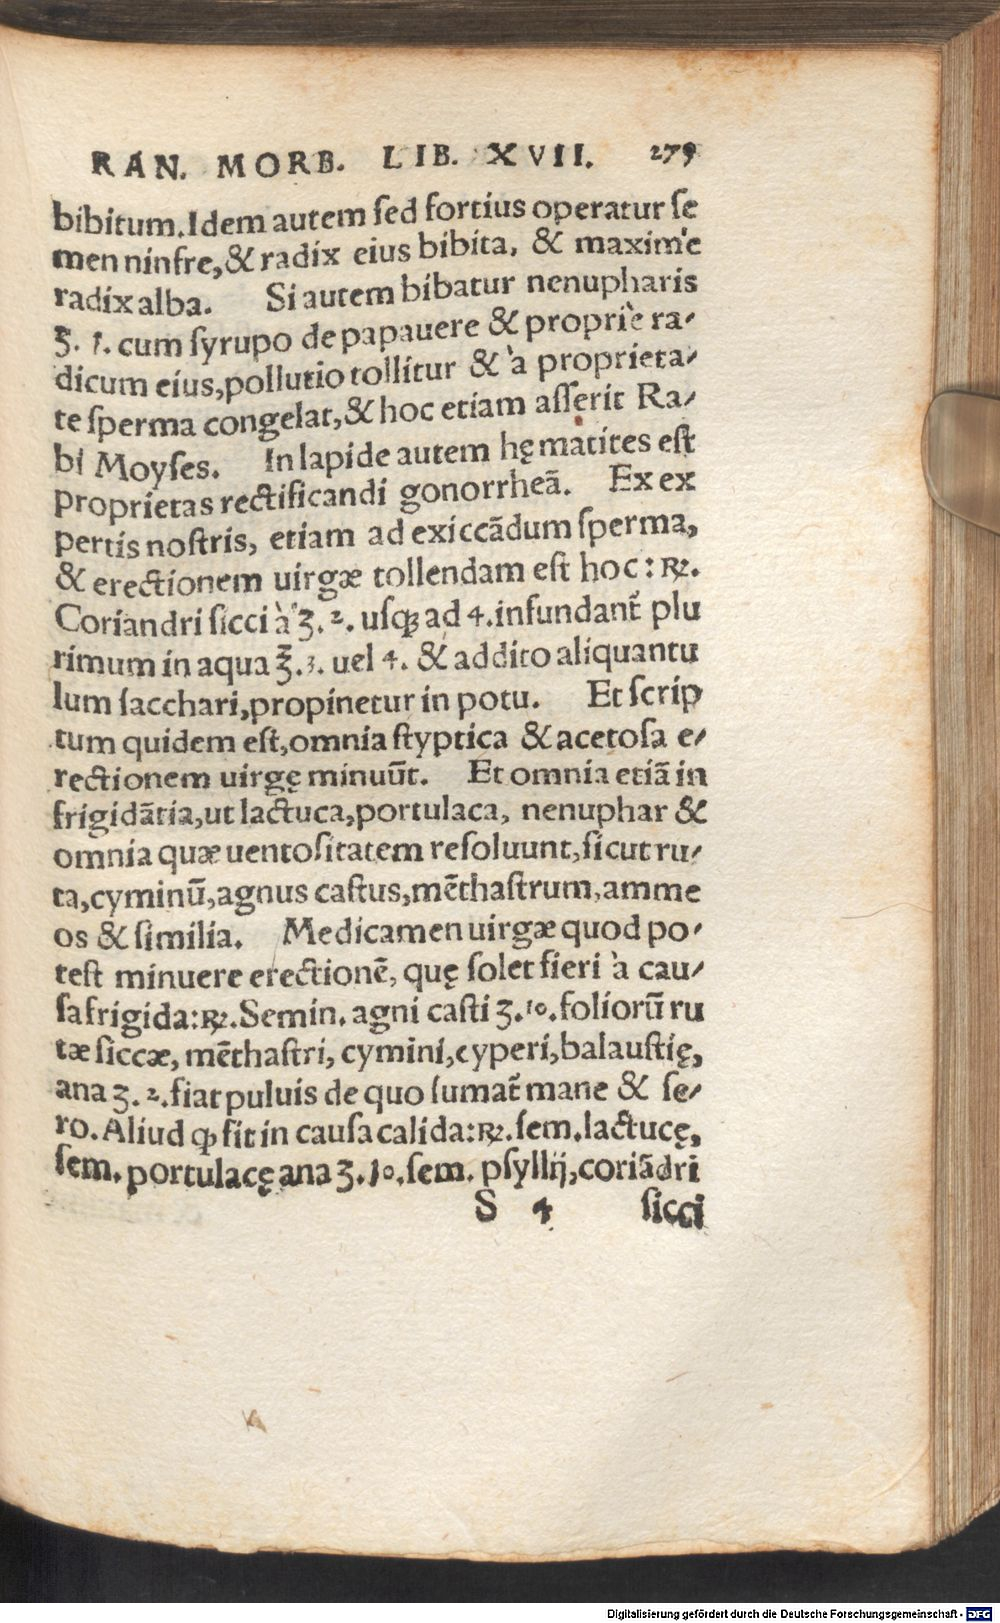 RAN. MORB. LIB. XVII. 279
bibitum. Idem autem sed fortius operatur se
men ninfre, & radix eius bibita, & maxime
radix alba. Si autem bibatur nenupharis
ʒ. 1. cum syrupo de papauere & propriè ra-
dicum eius, pollutio tollitur & à proprieta-
te sperma congelat, & hoc etiam asserit Ra-
bi Moyses. In lapide autem hęmatites est
proprietas rectificandi gonorrheā. Ex ex
pertis nostris, etiam ad exiccādum sperma,
& erectionem uirgæ tollendam est hoc: ℞.
Coriandri sicci à ʒ. 2. usqꝫ ad 4. infundant᷑ plu
rimum in aqua ℥. 3. uel 4. & addito aliquantu
lum sacchari, propinetur in potu. Et scrip
tum quidem est, omnia styptica & acetosa e-
rectionem uirgę minuūt. Et omnia etiā in
frigidātia, ut lactuca, portulaca, nenuphar &
omnia quæ uentositatem resoluunt, sicut ru-
ta, cyminū, agnus castus, mēthastrum, amme
os & similia. Medicamen uirgæ quod po-
test minuere erectionē, quę solet fieri à cau-
sa frigida: ℞. Semin. agni casti ʒ. 10. foliorū ru
tæ siccæ, mēthastri, cymini, cyperi, balaustię,
ana ʒ. 2. fiat puluis de quo sumat᷑ mane & se-
ro. Aliud ꝙ fit in causa calida: ℞. sem. lactucę,
sem. portulacę ana ʒ. 10. sem. psyllij, coriādri
S 4 sicci
Digitalisierung gefördert durch die Deutsche Forschungsgemeinschaft - DFG